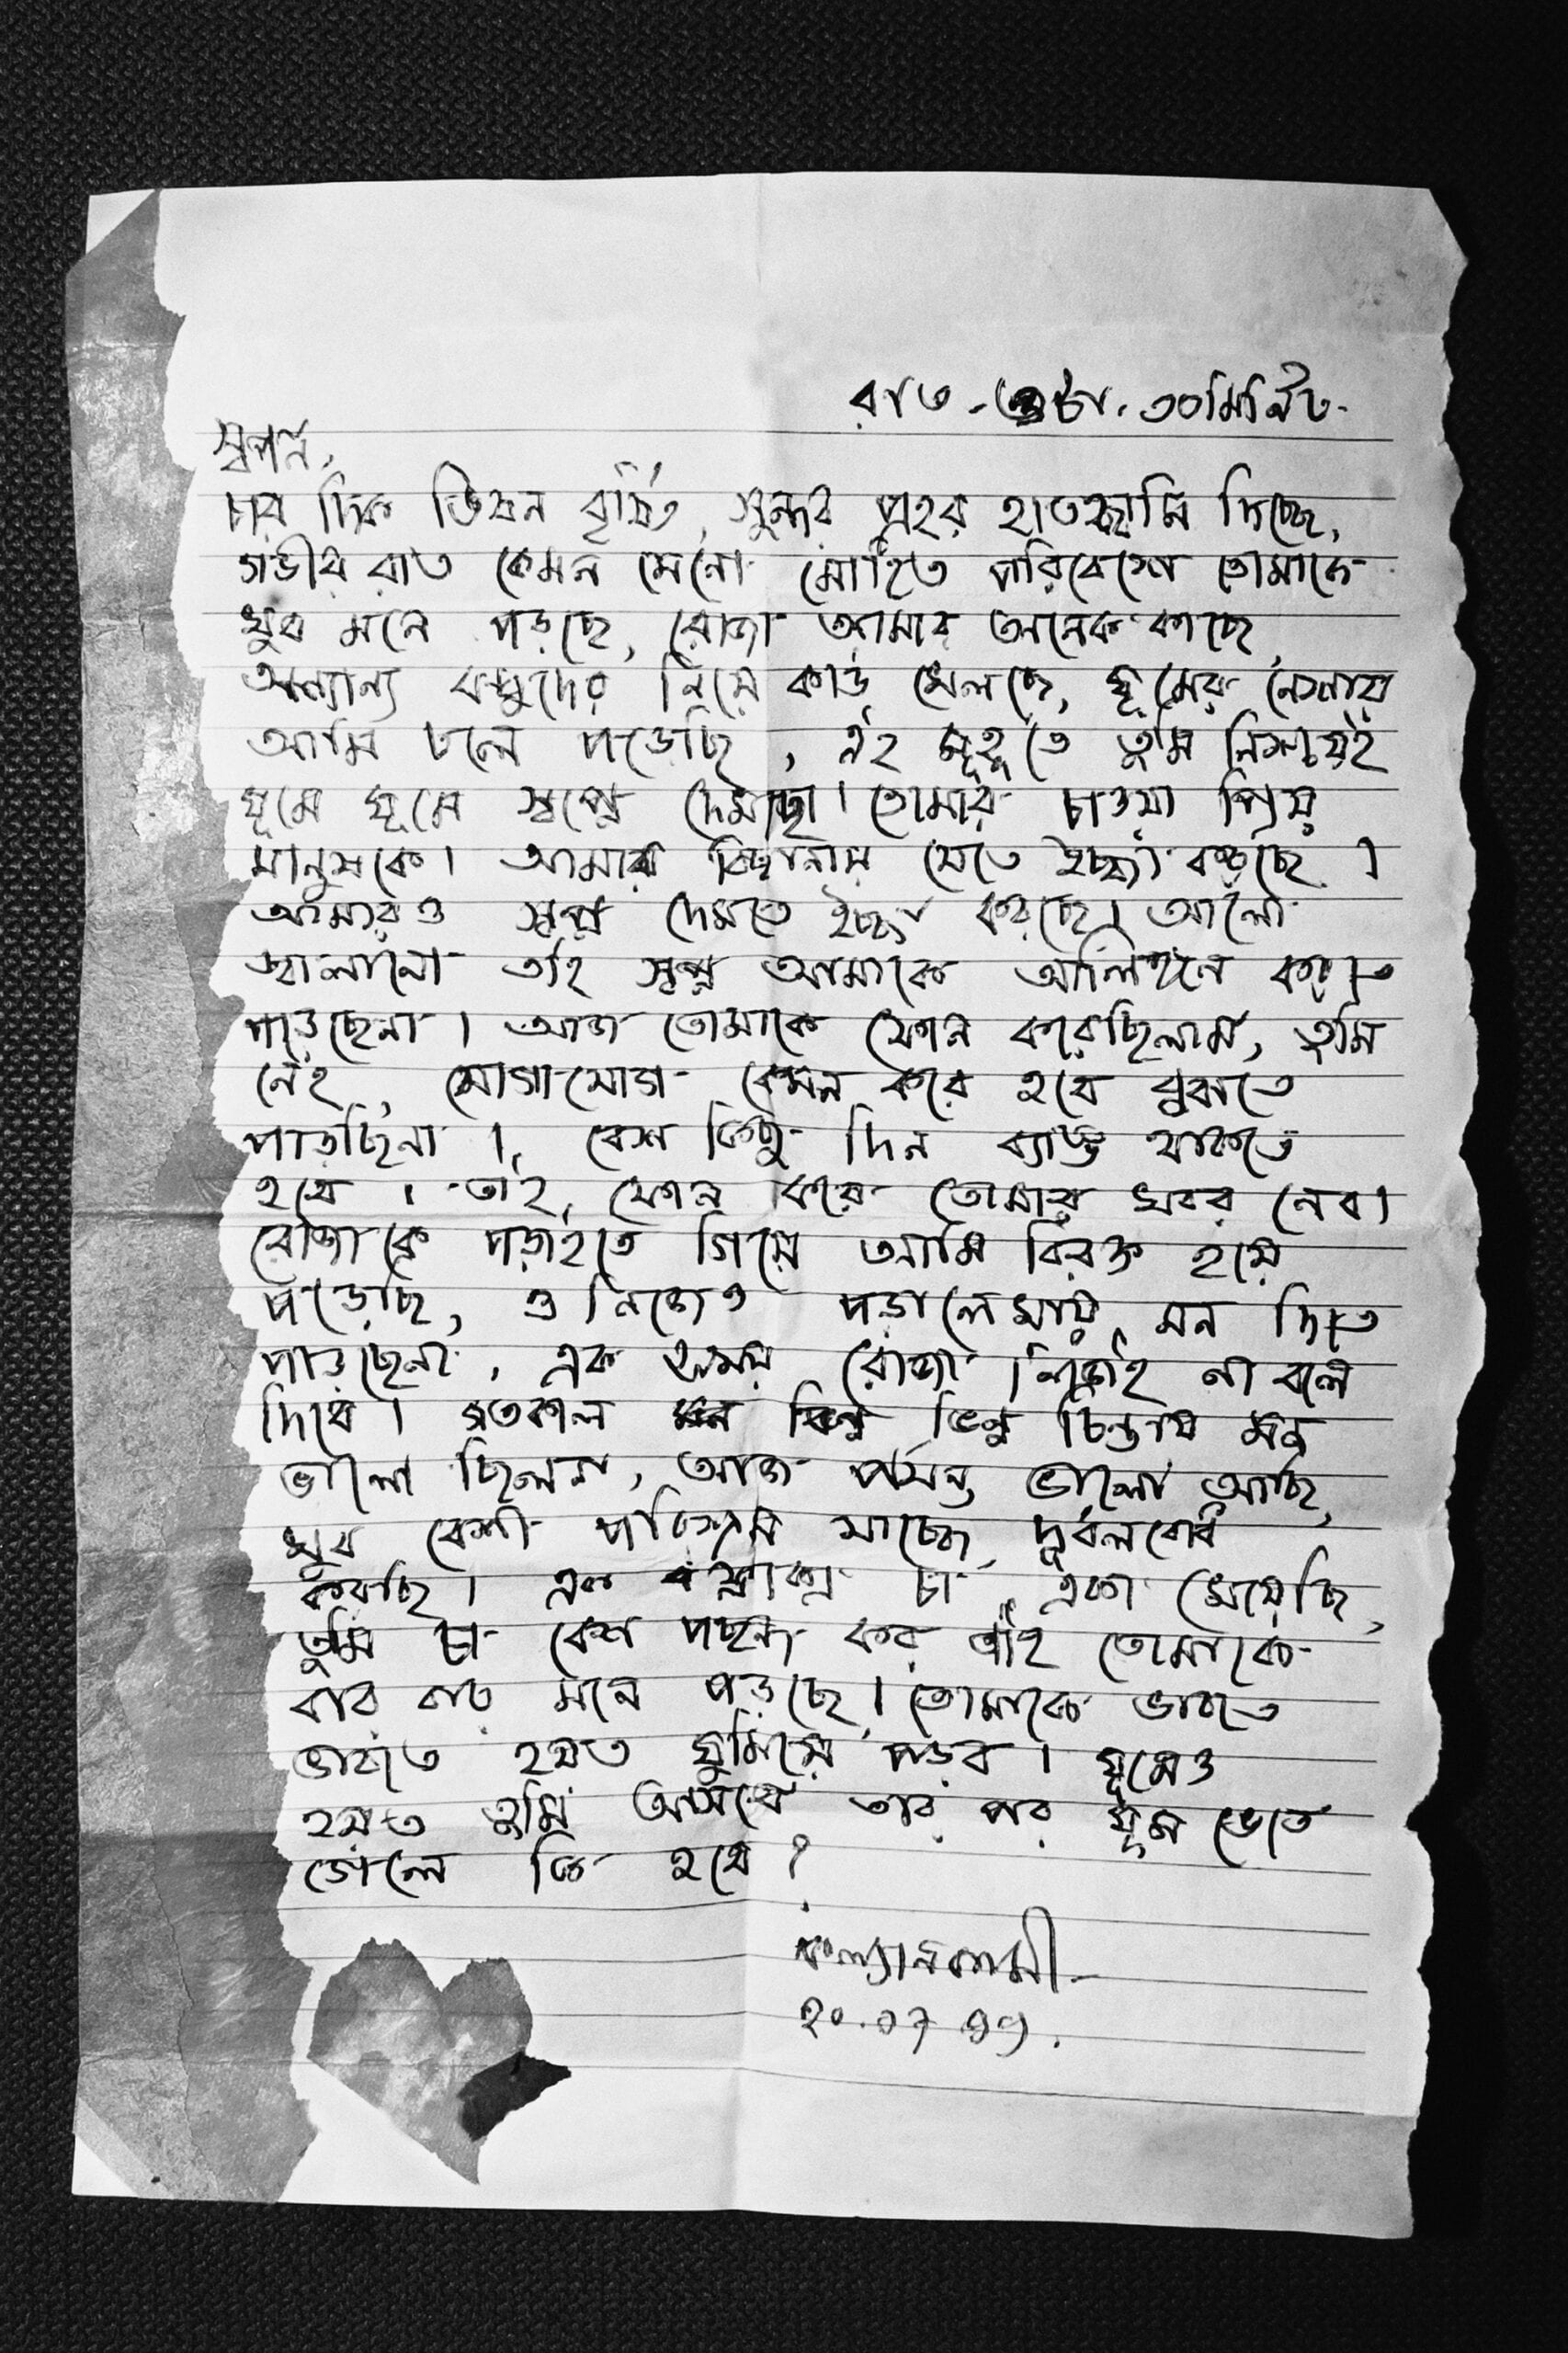 রাত - ৩টা. ৩০মিনিট -
স্বপন,
চার দিক ভিষন বৃষ্টি, সুন্দর প্রহর হাতছানি দিচ্ছে,
গভীর রাত কেমন যেনো মোহিত পরিবেশে তোমাকে
খুব মনে পড়ছে, রোজা আমার অনেক কাছে,
অন্যান্য বন্ধুদের নিয়ে কার্ড খেলছে, ঘূমের নেশায়
আমি ঢলে পড়েছি, এই মূহুর্তে তুমি নিশ্চয়ই
ঘূমে ঘূমে স্বপ্নে দেখছো। তোমার চাওয়া প্রিয়
মানুষকে। আমার বিছানায় যেতে ইচ্ছা করছে।
আমারও স্বপ্ন দেখতে ইচ্ছা করছে। আলো
জ্বালানো তাই স্বপ্ন আমাকে আলিঙ্গন করতে
পাড়ছেনা। আজ তোমাকে ফোন করেছিলাম, তুমি
নেই, যোগাযোগ কেমন করে হবে বুঝতে
পাড়ছিনা। বেশ কিছু দিন ব্যাস্ত থাকতে
হবে। তাই, ফোন করে তোমার খবর নেব।
রোজাকে পড়াইতে গিয়ে আমি বিরক্ত হয়ে
পড়েছি, ও নিজেও পড়ালেখায় মন দিতে
পাড়ছেনা, এক সময় রোজা নিজেই না বলে
দিবে। গতকাল ভিন্ন চিন্তায় মন
ভালো ছিলনা, আজ পর্যন্ত ভালো আছি,
খুব বেশী পরিশ্রম যাচ্ছে, দূর্বলবোধ
করছি। এক ফ্লাক্স চা একা খেয়েছি,
তুমি চা বেশ পছন্দ কর তাই তোমাকে
বার বার মনে পড়ছে। তোমাকে ভাবতে
ভাবতে হয়ত ঘুমিয়ে পড়ব। ঘূমেও
হয়ত তুমি আসবে তার পর ঘূম ভেঙে
গেলে কি হবে?
কল্যানকামী
২০.০৭.৯৭.